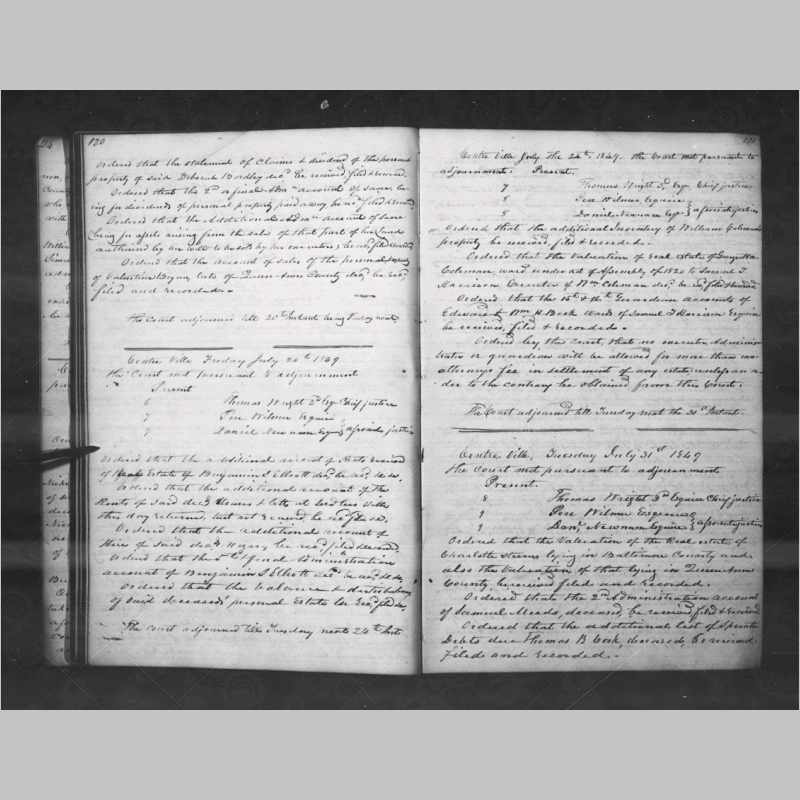 120
Ordered that the statement of Claims & dividend of the personal
property of said Deborah Bradley decd be received filed & recorded
Ordered that the 2d & final Admn account of
in dividends of personal property
Ordered that the Additional Admn account of same
being for assets arising from the sale of that part of her land
authorised by her will to be sold by her executors, be recd filed & recorded
Ordered that the account of sales of the personal property
of Valentine Bryan, late of Queen Anns County decd be recd
filed and recorded.
The Court adjourned till 20th Instant being Friday next,
Centre Ville Friday July 20th 1849
the Court met pursuant to adjournment
Present
6 Thomas Wright 3d Esqr Chief justice
7 Pere Wilmer Esquire
7 Daniel Newnam Esquire } associate justices
Ordered that the additional account of Rents received
of Real Estate of Benjamin S Elliott decd be recd &c &c.
Ordered that the additional account of the
Rents of said decd Houses & lotts at Centre Ville
this day returned, but not &c, be recd filed &c.
Ordered that the additional account of
Hire of said decd Negroes, be recd filed & recorded.
Ordered that the & final Administration
account of Benjamin S Elliott decd be recd &c &c.
Ordered that the balance & distributions
of said deceased's personal Estate be recd filed &c,
The Court adjourned till Tuesday next 24th Inst
121
Centre Ville July the 24th 1849. the Court met pursuant to
adjournment. Present.
7 Thomas Wright 3d Esqr Chief justice
8 Pere Wilmer Esquire
8 Daniel Newnam Esqr } associate justices
Ordered that the additional Inventory of William
property be received, filed & recorded.
Ordered that the Valuation of real estate of
Coleman, ward under act of Assembly of 1820 to Samuel T.
Harrison Executor of Wm Coleman decd be recd filed & recorded
Ordered that the 15th & Guardian accounts of
Edward & Wm H. Beck Wards of Samuel T Harrison Esquire
be received, filed & recorded.
Ordered by the Court, that no executor Adminis-
trator or guardian will be allowed for more than one
attorneys fee in settlement of any estate, unless an or-
der to the contrary be obtained from this Court.
The Court adjourned till Tuesday next the 31st Instant.
Centre Ville, Tuesday July 31st 1849
the Court met pursuant to adjournment
Present.
8 Thomas Wright 3d Esquire Chief justice
9 Pere Wilmer Esquire
9 Danl Newnam Esquire } associate justices
Ordered that the Valuation of the Real estate of
Charlotte Stevens lying in Baltimore County and
also the Valuation of that lying in Queen Ann
County be received filed and recorded.
Ordered that the 2nd Administration account
of Samuel Meads, deceased, be received filed & recorded
Ordered that the additional list of Sperate
Debts due Thomas B. Cook, deceased, be received
filed and recorded.